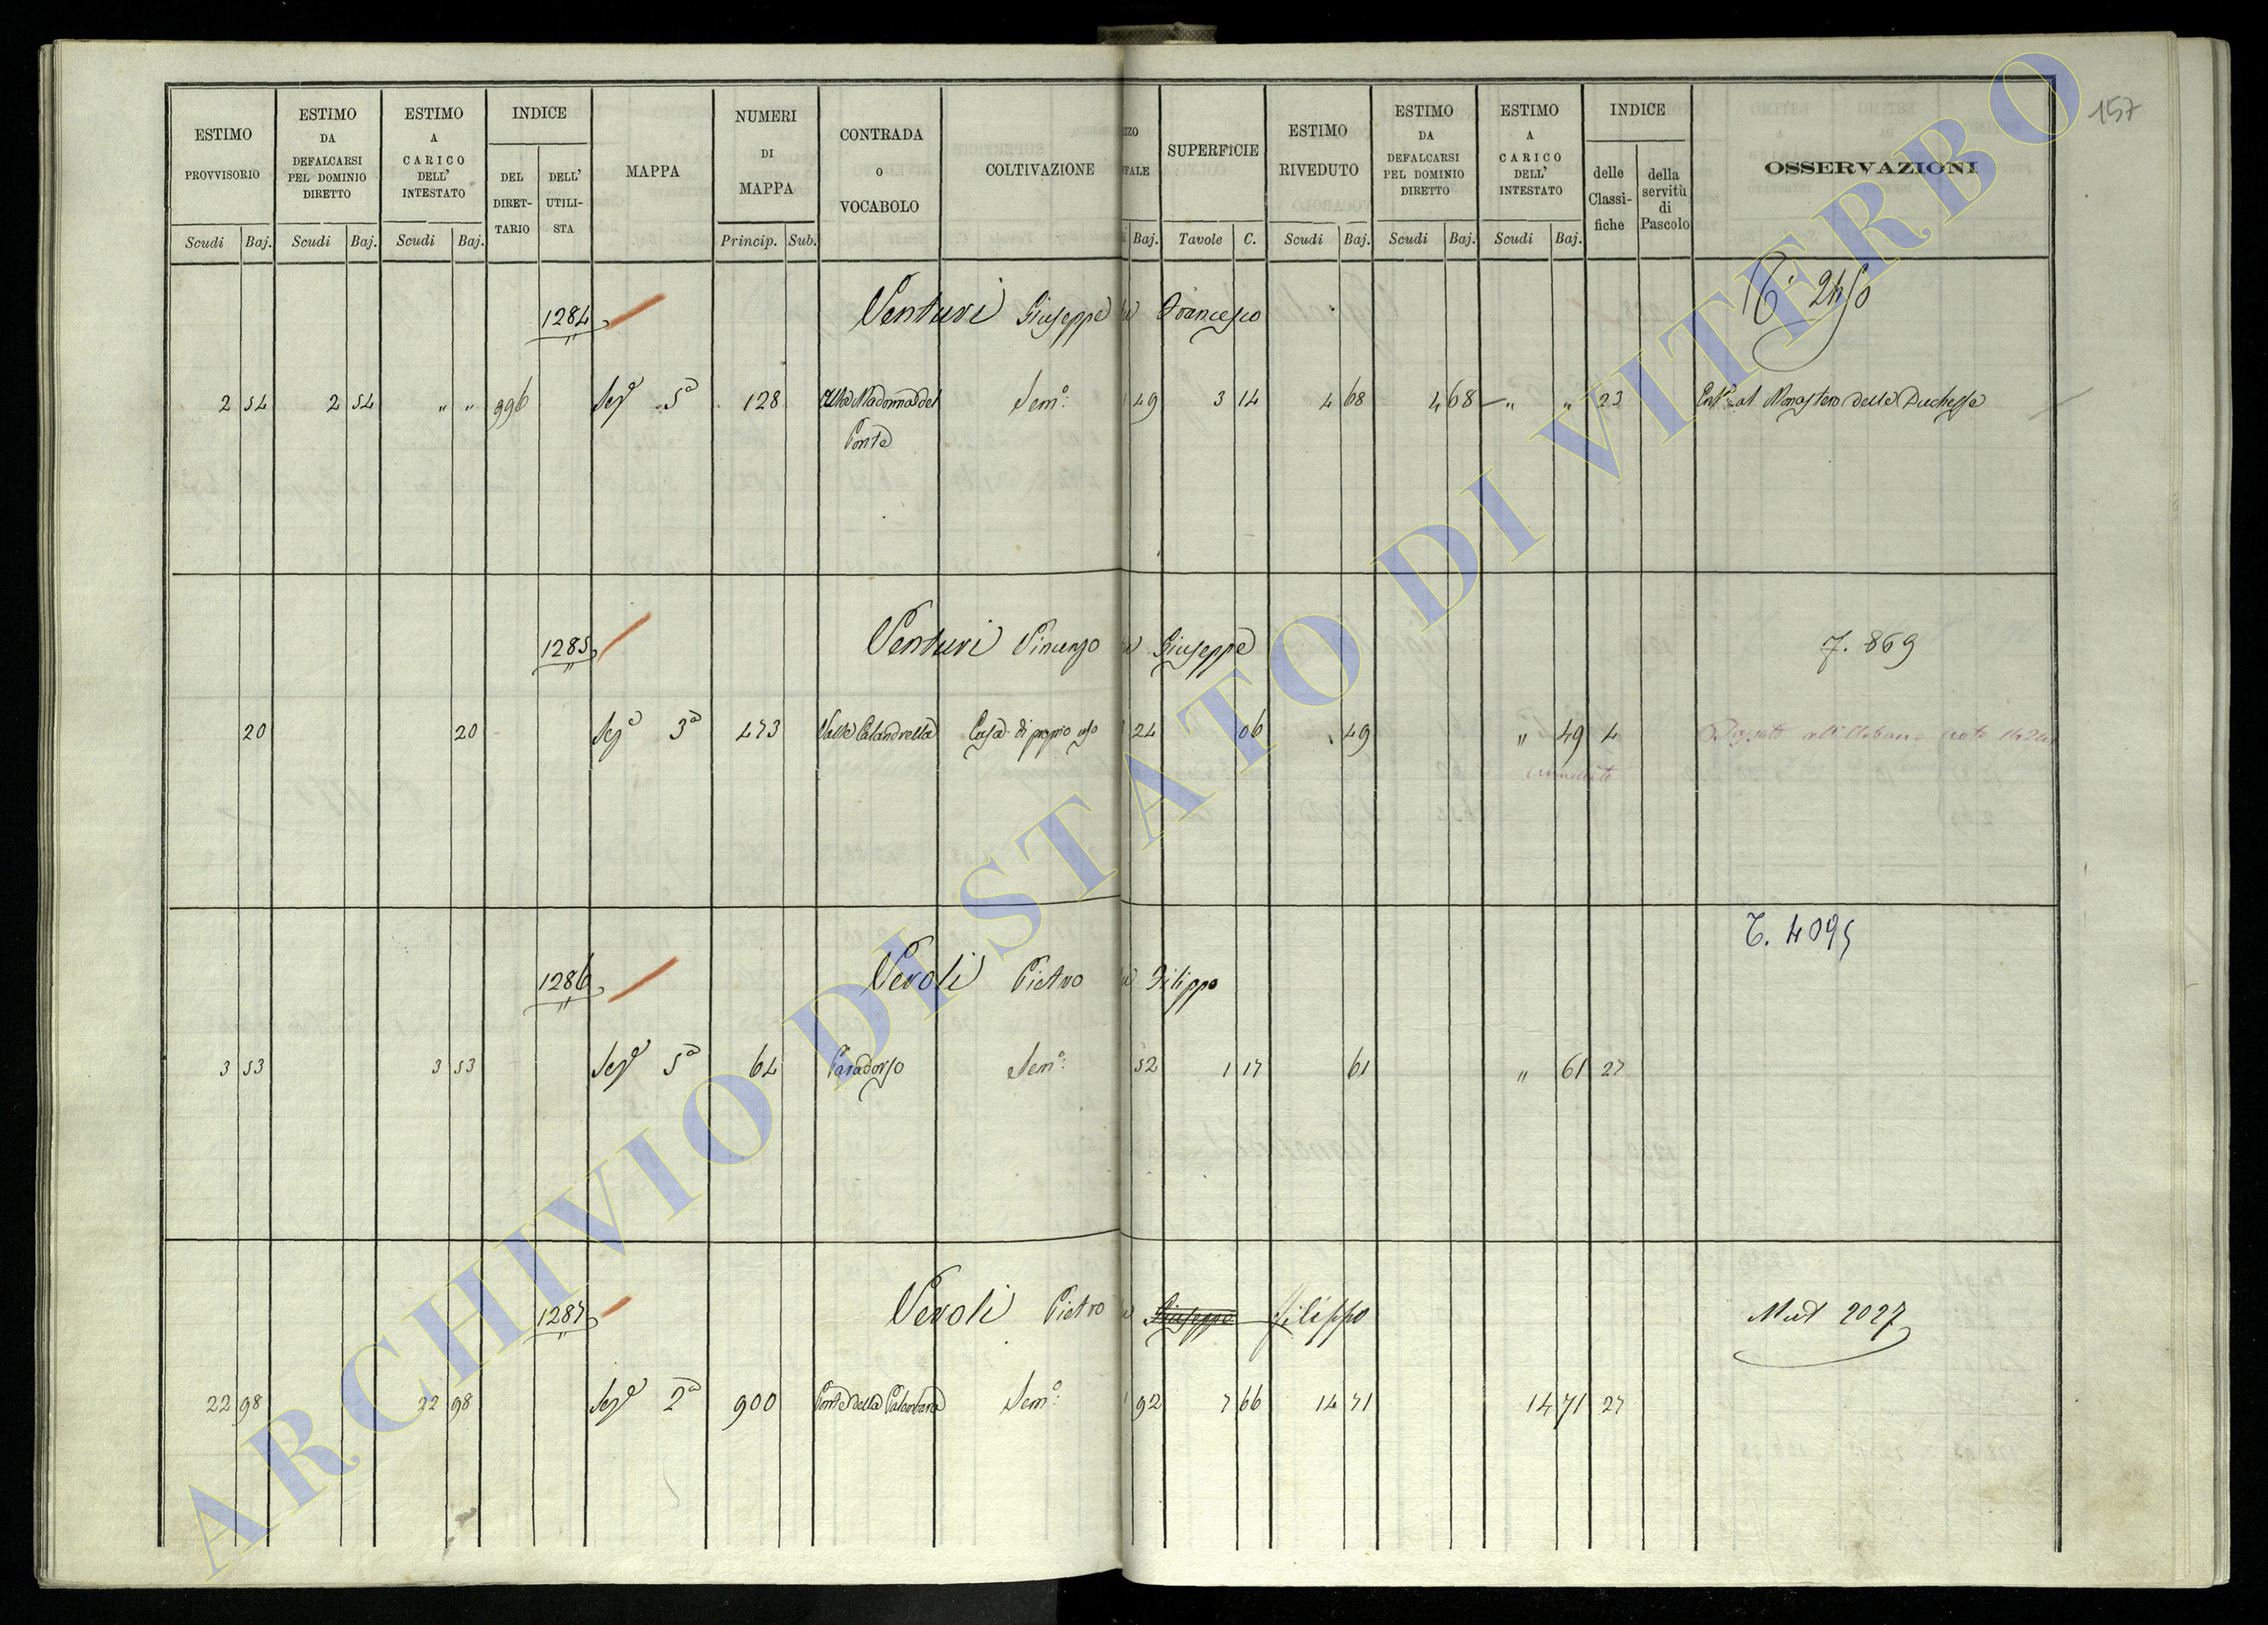 157
ESTIMO PROVVISORIO | ESTIMO DA DEFALCARSI PEL DOMINIO DIRETTO | ESTIMO A CARICO DELL' INTESTATO | INDICE | MAPPA | NUMERI DI MAPPA | CONTRADA O VOCABOLO | COLTIVAZIONE | SUPERFICIE | ESTIMO RIVEDUTO | ESTIMO DA DEFALCARSI PEL DOMINIO DIRETTO | ESTIMO A CARICO DELL' INTESTATO | INDICE | OSSERVAZIONI
DEL DIRETTARIO | DELL' UTILISTA | delle Classifiche | della servitù di Pascolo
Scudi | Baj. | Scudi | Baj. | Scudi | Baj. | Princip. | Sub. | Baj. | Tavole | C. | Scudi | Baj. | Scudi | Baj. | Scudi | Baj.
1284 Venturi Giuseppe Francesco
2 54 2 54 " " 996 Sez.e 5a 128 Madonna del Sem.o 49 3 14 4 68 4 68 " " 23 al Monastero delle Duchesse
Ponte
1285 Venturi Vincenzo Giuseppe 869
20 20 Sez.e 3a 473 Valle Calandrella Casa di proprio uso 24 06 49 " 49 4
T. 4095
1286 Veroli Pietro Filippo
3 53 3 53 Sez.e 5a 64 Paradosso Sem.o 52 1 17 61 " 61 27
1287 Veroli Pietro Giuseppe Filippo 2027
22 98 22 98 Sez.e 2a 900 Ponte della Sem.o 92 7 66 14 71 14 71 27
ARCHIVIO DI STATO DI VITERBO